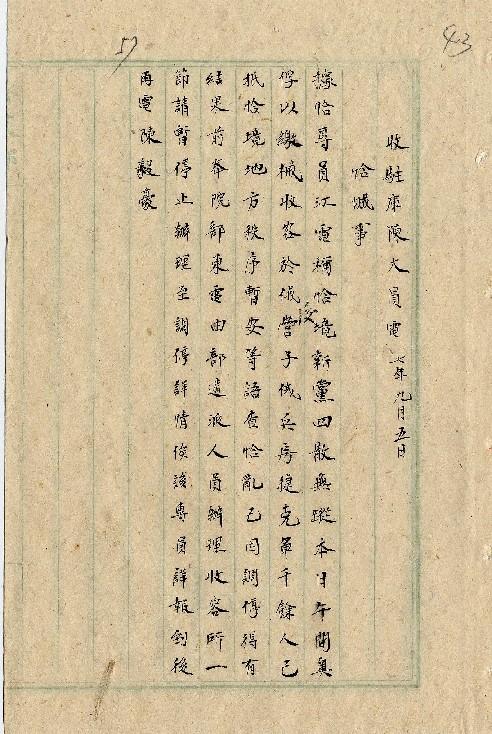 43
57
收駐庫陳大員電 七年九月五日
恰城事
據恰專員江電稱恰境新黨四散無蹤本日午間奧
俘以繳械收容於俄營子俄兵房捷克軍千餘人已
抵恰境地方秩序暫安等語查恰亂已因調停得有
結果前奉院部東電由部遴派人員辦理收容所一
節請暫停止辦理至調停詳情俟該專員詳報到後
再電陳毅豪